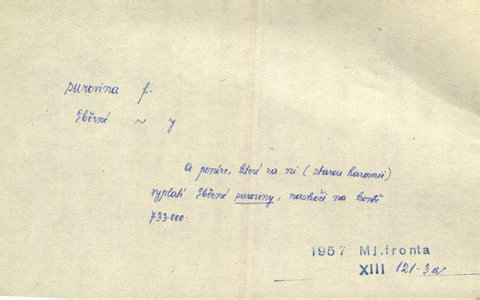 surovina f.
Sběrné ~ y
A peníze, které za ni (starou karoserii)
vyplatí Sběrné suroviny, naskočí na kontě
733.000.
1957 Ml.fronta
XIII 121-3a